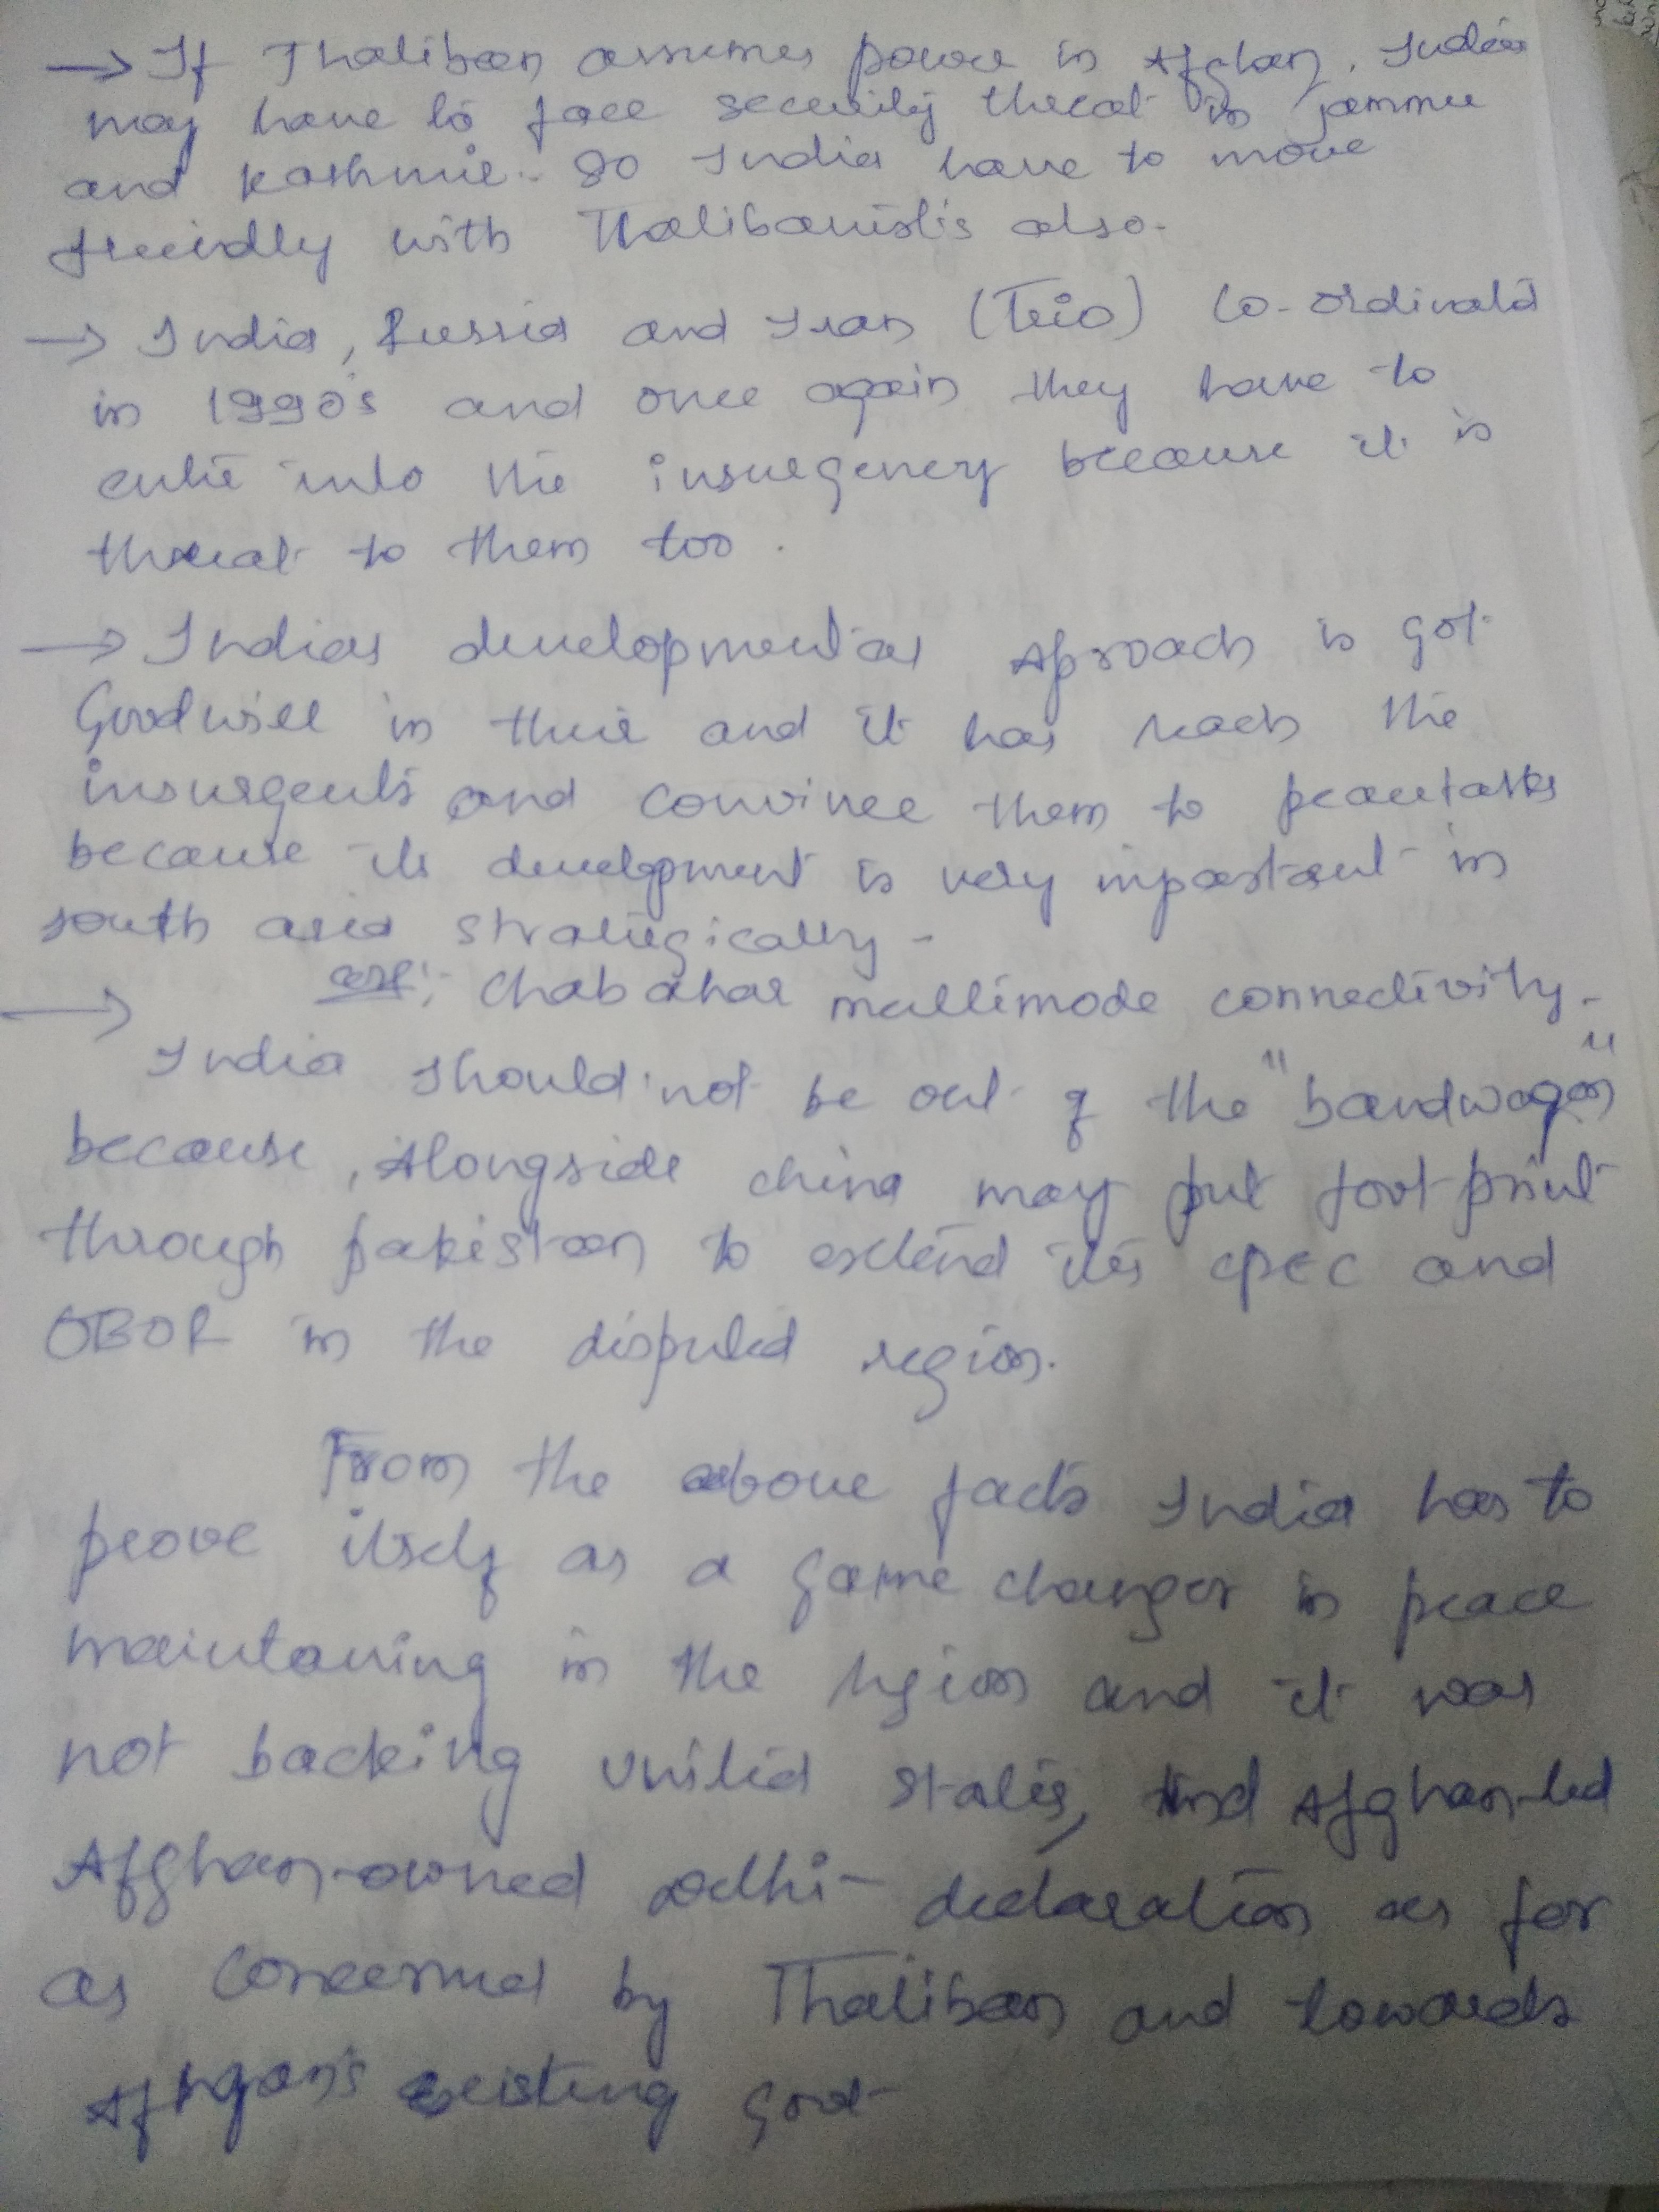 → If Thaliban assumes power in Afghan, India
may have to face security threat in jammu
and kashmir. So India have to move
friendly with Thalibanists also.
→ India, Russia and Iran (Trio) Co-ordinated
in 1990's and once again they have to
enter into the insurgency because it is
threat to them too.
→ Indias developmental Aproach is got
Goodwill in their and it has reach the
insurgents and convince them to peacetalks
because its development is very important in
south asia strategically -
Chabahar multimode connectivity.
→ India should not be out of the "bandwagon"
because, Alongside china may put foot print
through pakistan to extend its CPEC and
OBOR in the disputed region.
From the above facts India has to
prove itself as a game changer in peace
maintaning in the region and it was
not backing United States, And Afghan-led
Afghan-owned Delhi- declaration as for
as concerned by Thaliban and towards
Afhgan's existing Govt